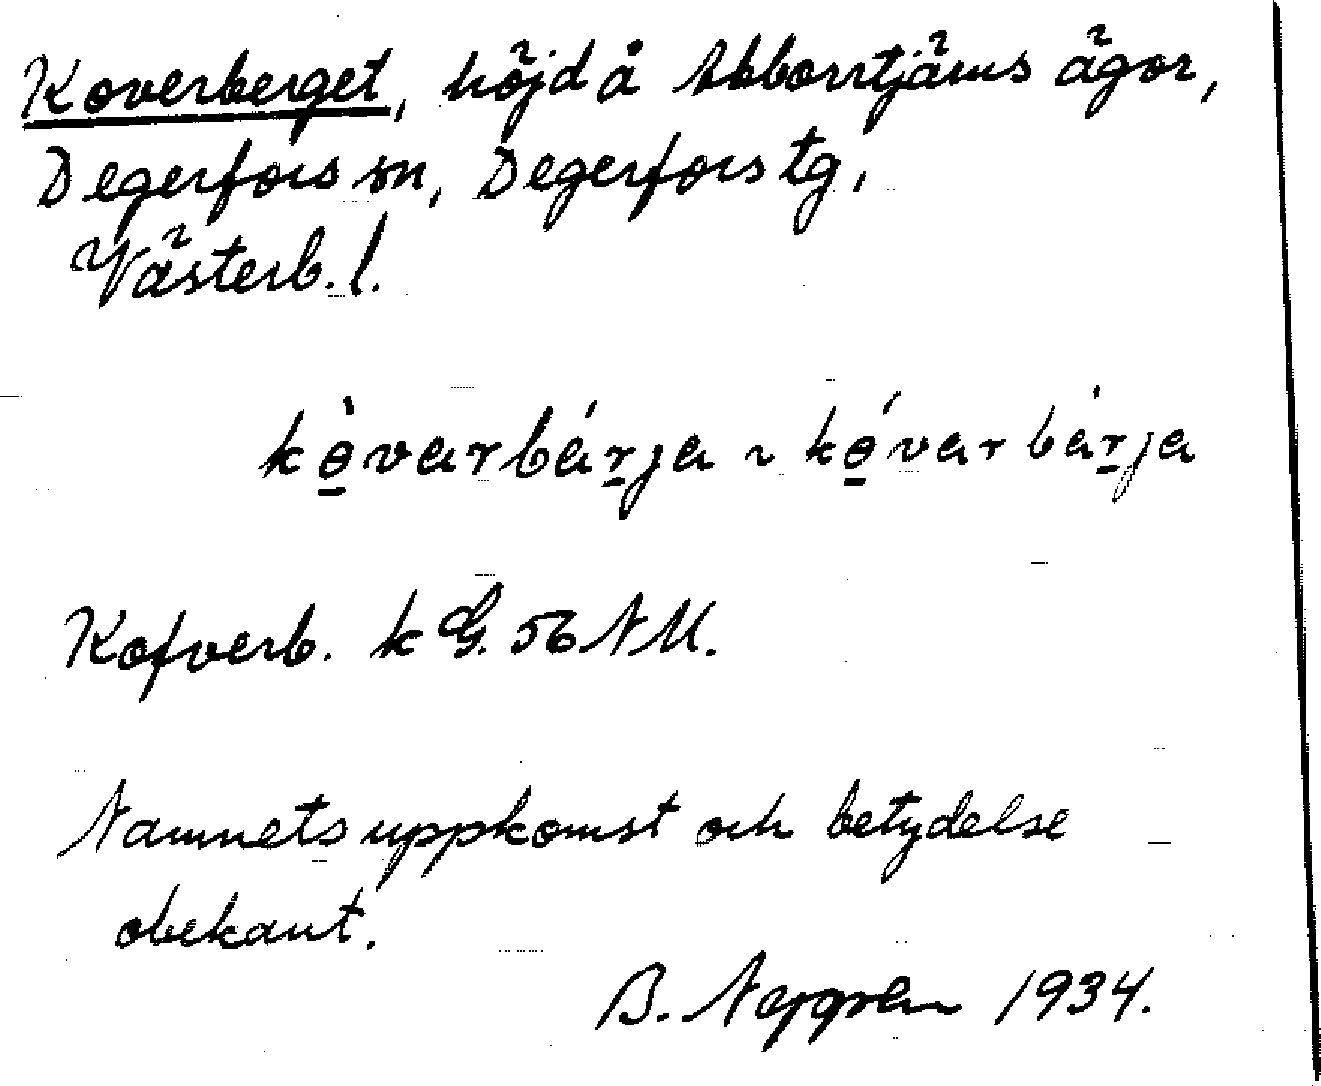 Koverberget, höjd å Abborrtjärns ägor,
Degerfors sn, Degerfors tg,
Västerb. l.
kө̱̀varbáṟja ~ kө̱́varbàṟja
Kofverb. k G. 56 NM.
Namnets uppkomst och betydelse
obekant.
B. Nygren 1934.